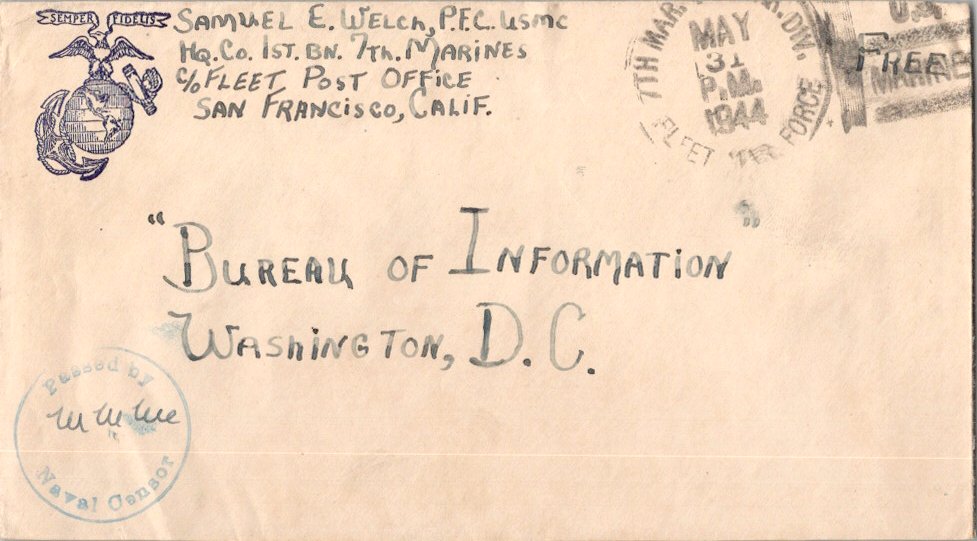 SEMPER FIDELIS
SAMUEL E. WELCH, P.F.C. USMC
HQ. CO. 1ST. BN. 7TH. MARINES
C/O FLEET POST OFFICE
SAN FRANCISCO, CALIF.
7TH MAR. DIV.
MAY
31
P.M.
1944
FLEET FORCE
U.S.
FREE
MARINE
"BUREAU OF INFORMATION"
WASHINGTON, D.C.
Passed by
Naval Censor